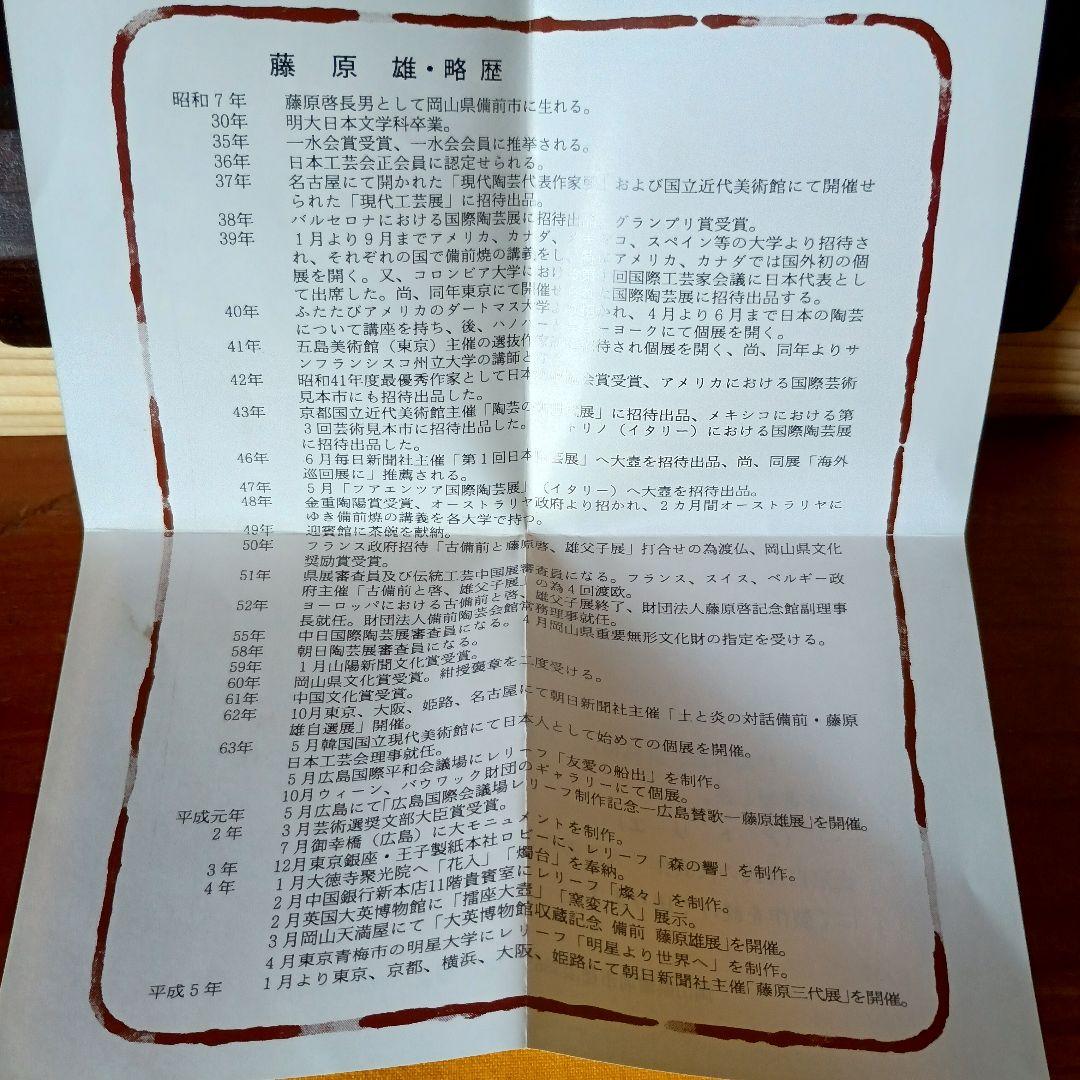 藤原 雄・略歴
昭和7年 藤原啓長男として岡山県備前市に生れる。
30年 明大日本文学科卒業。
35年 一水会賞受賞、一水会会員に推挙される。
36年 日本工芸会正会員に認定せられる。
37年 名古屋にて開かれた「現代陶芸代表作家 」および国立近代美術館にて開催せ
られた「現代工芸展」に招待出品。
38年 バルセロナにおける国際陶芸展に招待出 グランプリ賞受賞。
39年 1月より9月までアメリカ、カナダ、 コ、スペイン等の大学より招待さ
れ、それぞれの国で備前焼の講義をし、 アメリカ、カナダでは国外初の個
展を開く。又、コロンビア大学にお 回国際工芸家会議に日本代表とし
て出席した。尚、同年東京にて開催せ 国際陶芸展に招待出品する。
40年 ふたたびアメリカのダートマス大学 かれ、4月より6月まで日本の陶芸
について講座を持ち、後、ハノバー ーヨークにて個展を開く。
41年 五島美術館(東京)主催の選抜作家 招待され個展を開く、尚、同年よりサ
ンフランシスコ州立大学の講師と
42年 昭和41年度最優秀作家として日本 会賞受賞、アメリカにおける国際芸術
見本市にも招待出品した。
43年 京都国立近代美術館主催「陶芸の 展」に招待出品、メキシコにおける第
3回芸術見本市に招待出品した。 トリノ(イタリー)における国際陶芸展
に招待出品した。
46年 6月毎日新聞社主催「第1回日本陶芸展」へ大壺を招待出品、尚、同展「海外
巡回展に」推薦される。
47年 5月「フアエンツア国際陶芸展」(イタリー)へ大壺を招待出品。
48年 金重陶陽賞受賞、オーストラリヤ政府より招かれ、2カ月間オーストラリヤに
ゆき備前焼の講義を各大学で持つ。
49年 迎賓館に茶碗を献納。
50年 フランス政府招待「古備前と藤原啓、雄父子展」打合せの為渡仏、岡山県文化
奨励賞受賞。
51年 県展審査員及び伝統工芸中国展審査員になる。フランス、スイス、ベルギー政
府主催「古備前と啓、雄父子展」の為4回渡欧。
52年 ヨーロッパにおける古備前と啓、雄父子展終了、財団法人藤原啓記念館副理事
長就任。財団法人備前陶芸会館常務理事就任。
55年 中日国際陶芸展審査員になる。4月岡山県重要無形文化財の指定を受ける。
58年 朝日陶芸展審査員になる。
59年 1月山陽新聞文化賞受賞。
60年 岡山県文化賞受賞。紺授褒章を二度受ける。
61年 中国文化賞受賞。
62年 10月東京、大阪、姫路、名古屋にて朝日新聞社主催「土と炎の対話備前・藤原
雄自選展」開催。
63年 5月韓国国立現代美術館にて日本人として始めての個展を開催。
日本工芸会理事就任。
5月広島国際平和会議場にレリーフ「友愛の船出」を制作。
10月ウィーン、バウワック財団のギャラリーにて個展。
平成元年 5月広島にて「広島国際会議場レリーフ制作記念―広島賛歌―藤原雄展」を開催。
2年 3月芸術選奨文部大臣賞受賞。
7月御幸橋(広島)に大モニュメントを制作。
3年 12月東京銀座・王子製紙本社ロビーに、レリーフ「森の響」を制作。
4年 1月大徳寺聚光院へ「花入」「燭台」を奉納。
2月中国銀行新本店11階貴賓室にレリーフ「燦々」を制作。
2月英国大英博物館に「擂座大壺」「窯変花入」展示。
3月岡山天満屋にて「大英博物館収蔵記念 備前 藤原雄展」を開催。
4月東京青梅市の明星大学にレリーフ「明星より世界へ」を制作。
平成5年 1月より東京、京都、横浜、大阪、姫路にて朝日新聞社主催「藤原三代展」を開催。